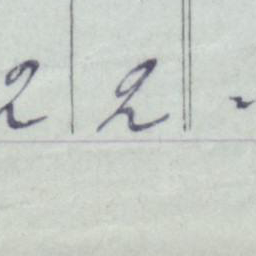 2 2 -